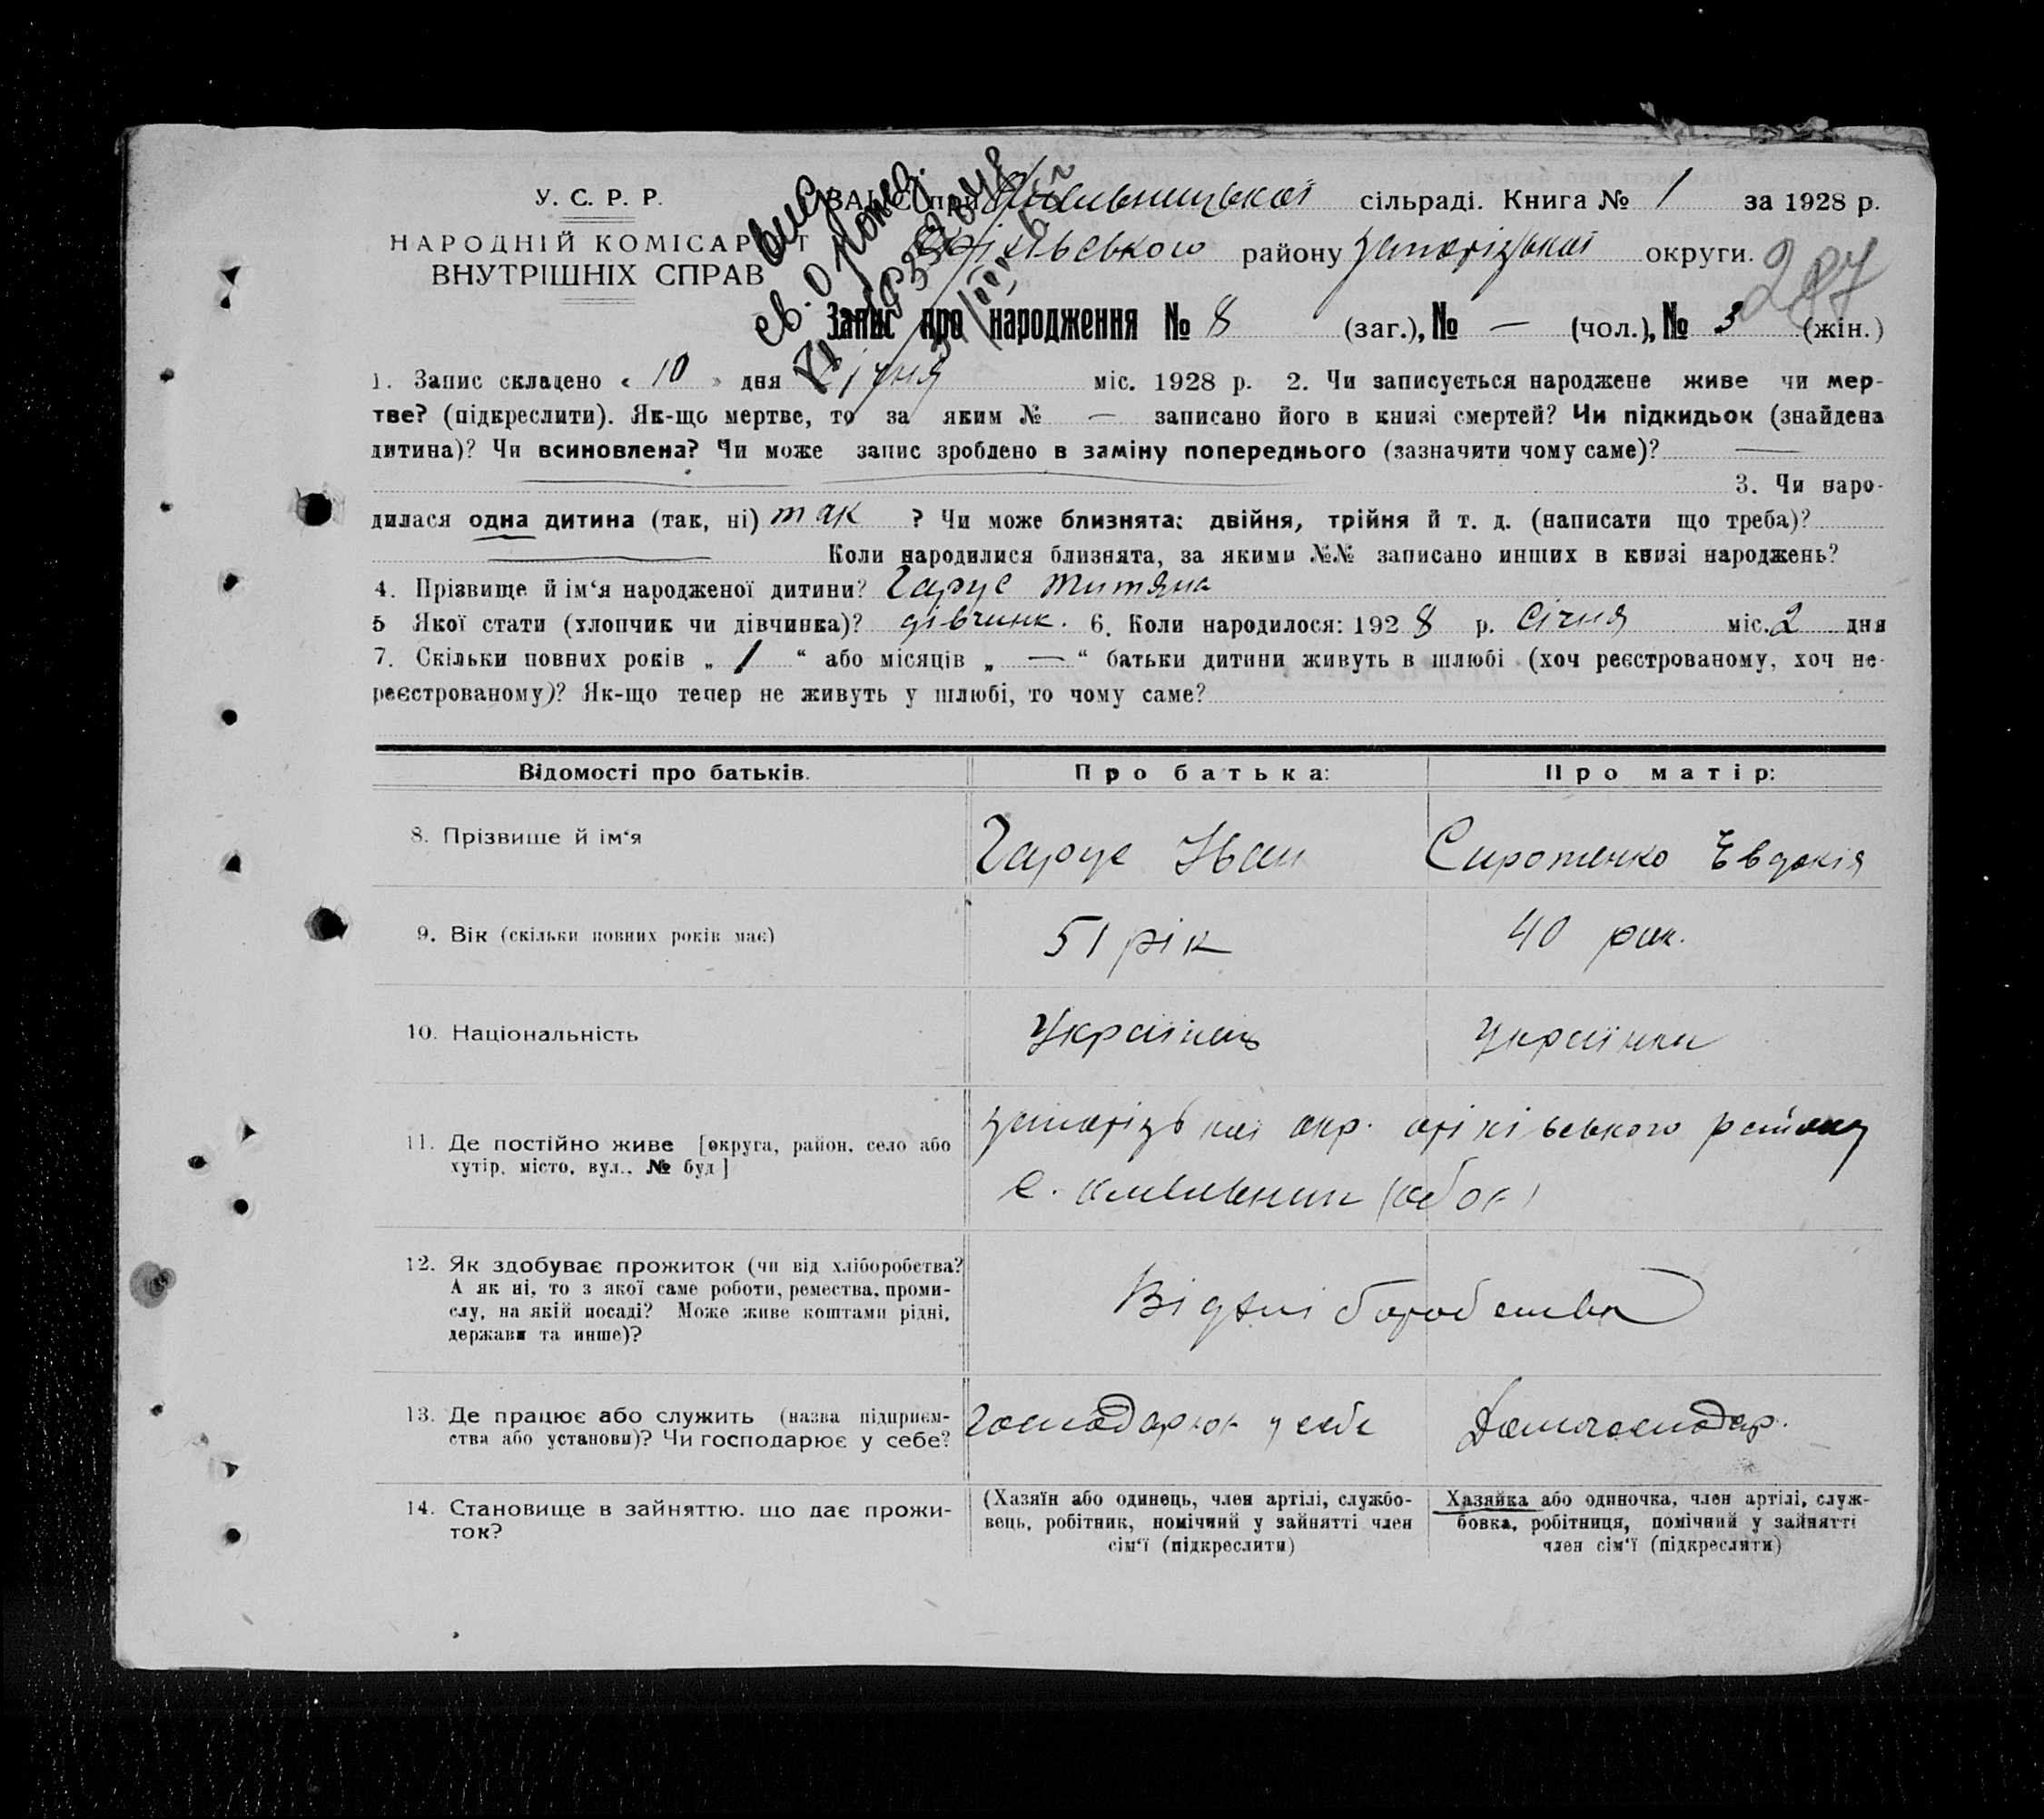 У. С. Р. Р.
НАРОДНІЙ КОМІСАРІАТ
ВНУТРІШНІХ СПРАВ
ЗАПИС при Омельницької сільраді. Книга № 1 за 1928 р.
Оріхівського району Запорізької округи.
287
вид.
св. о рожд.
Запис про народження № 8 (заг.), № — (чол.), № 3 (жін.)
1. Запис складено « 10 » дня Січня міс. 1928 р. 2. Чи записується народжене живе чи мер-
тве? (підкреслити). Як-що мертве, то за яким № — записано його в книзі смертей? Чи підкидьок (знайдена
дитина)? Чи всиновлена? Чи може запис зроблено в заміну попереднього (зазначити чому саме)? —
3. Чи наро-
дилася одна дитина (так, ні) так ? Чи може близнята: двійня, трійня й т. д. (написати що треба)?
Коли народилися близнята, за якими №№ записано инших в книзі народжень?
4. Прізвище й ім‘я народженої дитини? Гарус Титяна
5 Якої стати (хлопчик чи дівчинка)? дівчинк. 6. Коли народилося: 1928 р. Січня міс. 2 дня
7. Скільки повних років „ 1 “ або місяців „ — “ батьки дитини живуть в шлюбі (хоч реєстрованому, хоч не-
реєстрованому)? Як-що тепер не живуть у шлюбі, то чому саме?
Відомості про батьків. Про батька: Про матір:
8. Прізвище й ім‘я Гарус Іван Сиротенко Евдокія
9. Вік (скільки повних років має) 51 рік 40 рик.
10. Національність Українець Українка
11. Де постійно живе [округа, район, село або
хутір, місто, вул., № буд]
Запорізької окр. Оріхівського району
с. Омельник
12. Як здобуває прожиток (чи від хліборобства?
А як ні, то з якої саме роботи, ремества, проми-
слу, на якій посаді? Може живе коштами рідні,
держави та инше)?
Від хліборобства
13. Де працює або служить (назва підприєм-
ства або установи)? Чи господарює у себе?
Господарює у себе Домогосподар.
14. Становище в зайняттю, що дає прожи-
ток?
(Хазяїн або одинець, член артілі, службо-
вець, робітник, помічний у зайнятті член
сім‘ї (підкреслити)
Хазяйка або одиночка, член артілі, служ-
бовка, робітниця, помічний у зайнятті
член сім‘ї (підкреслити)